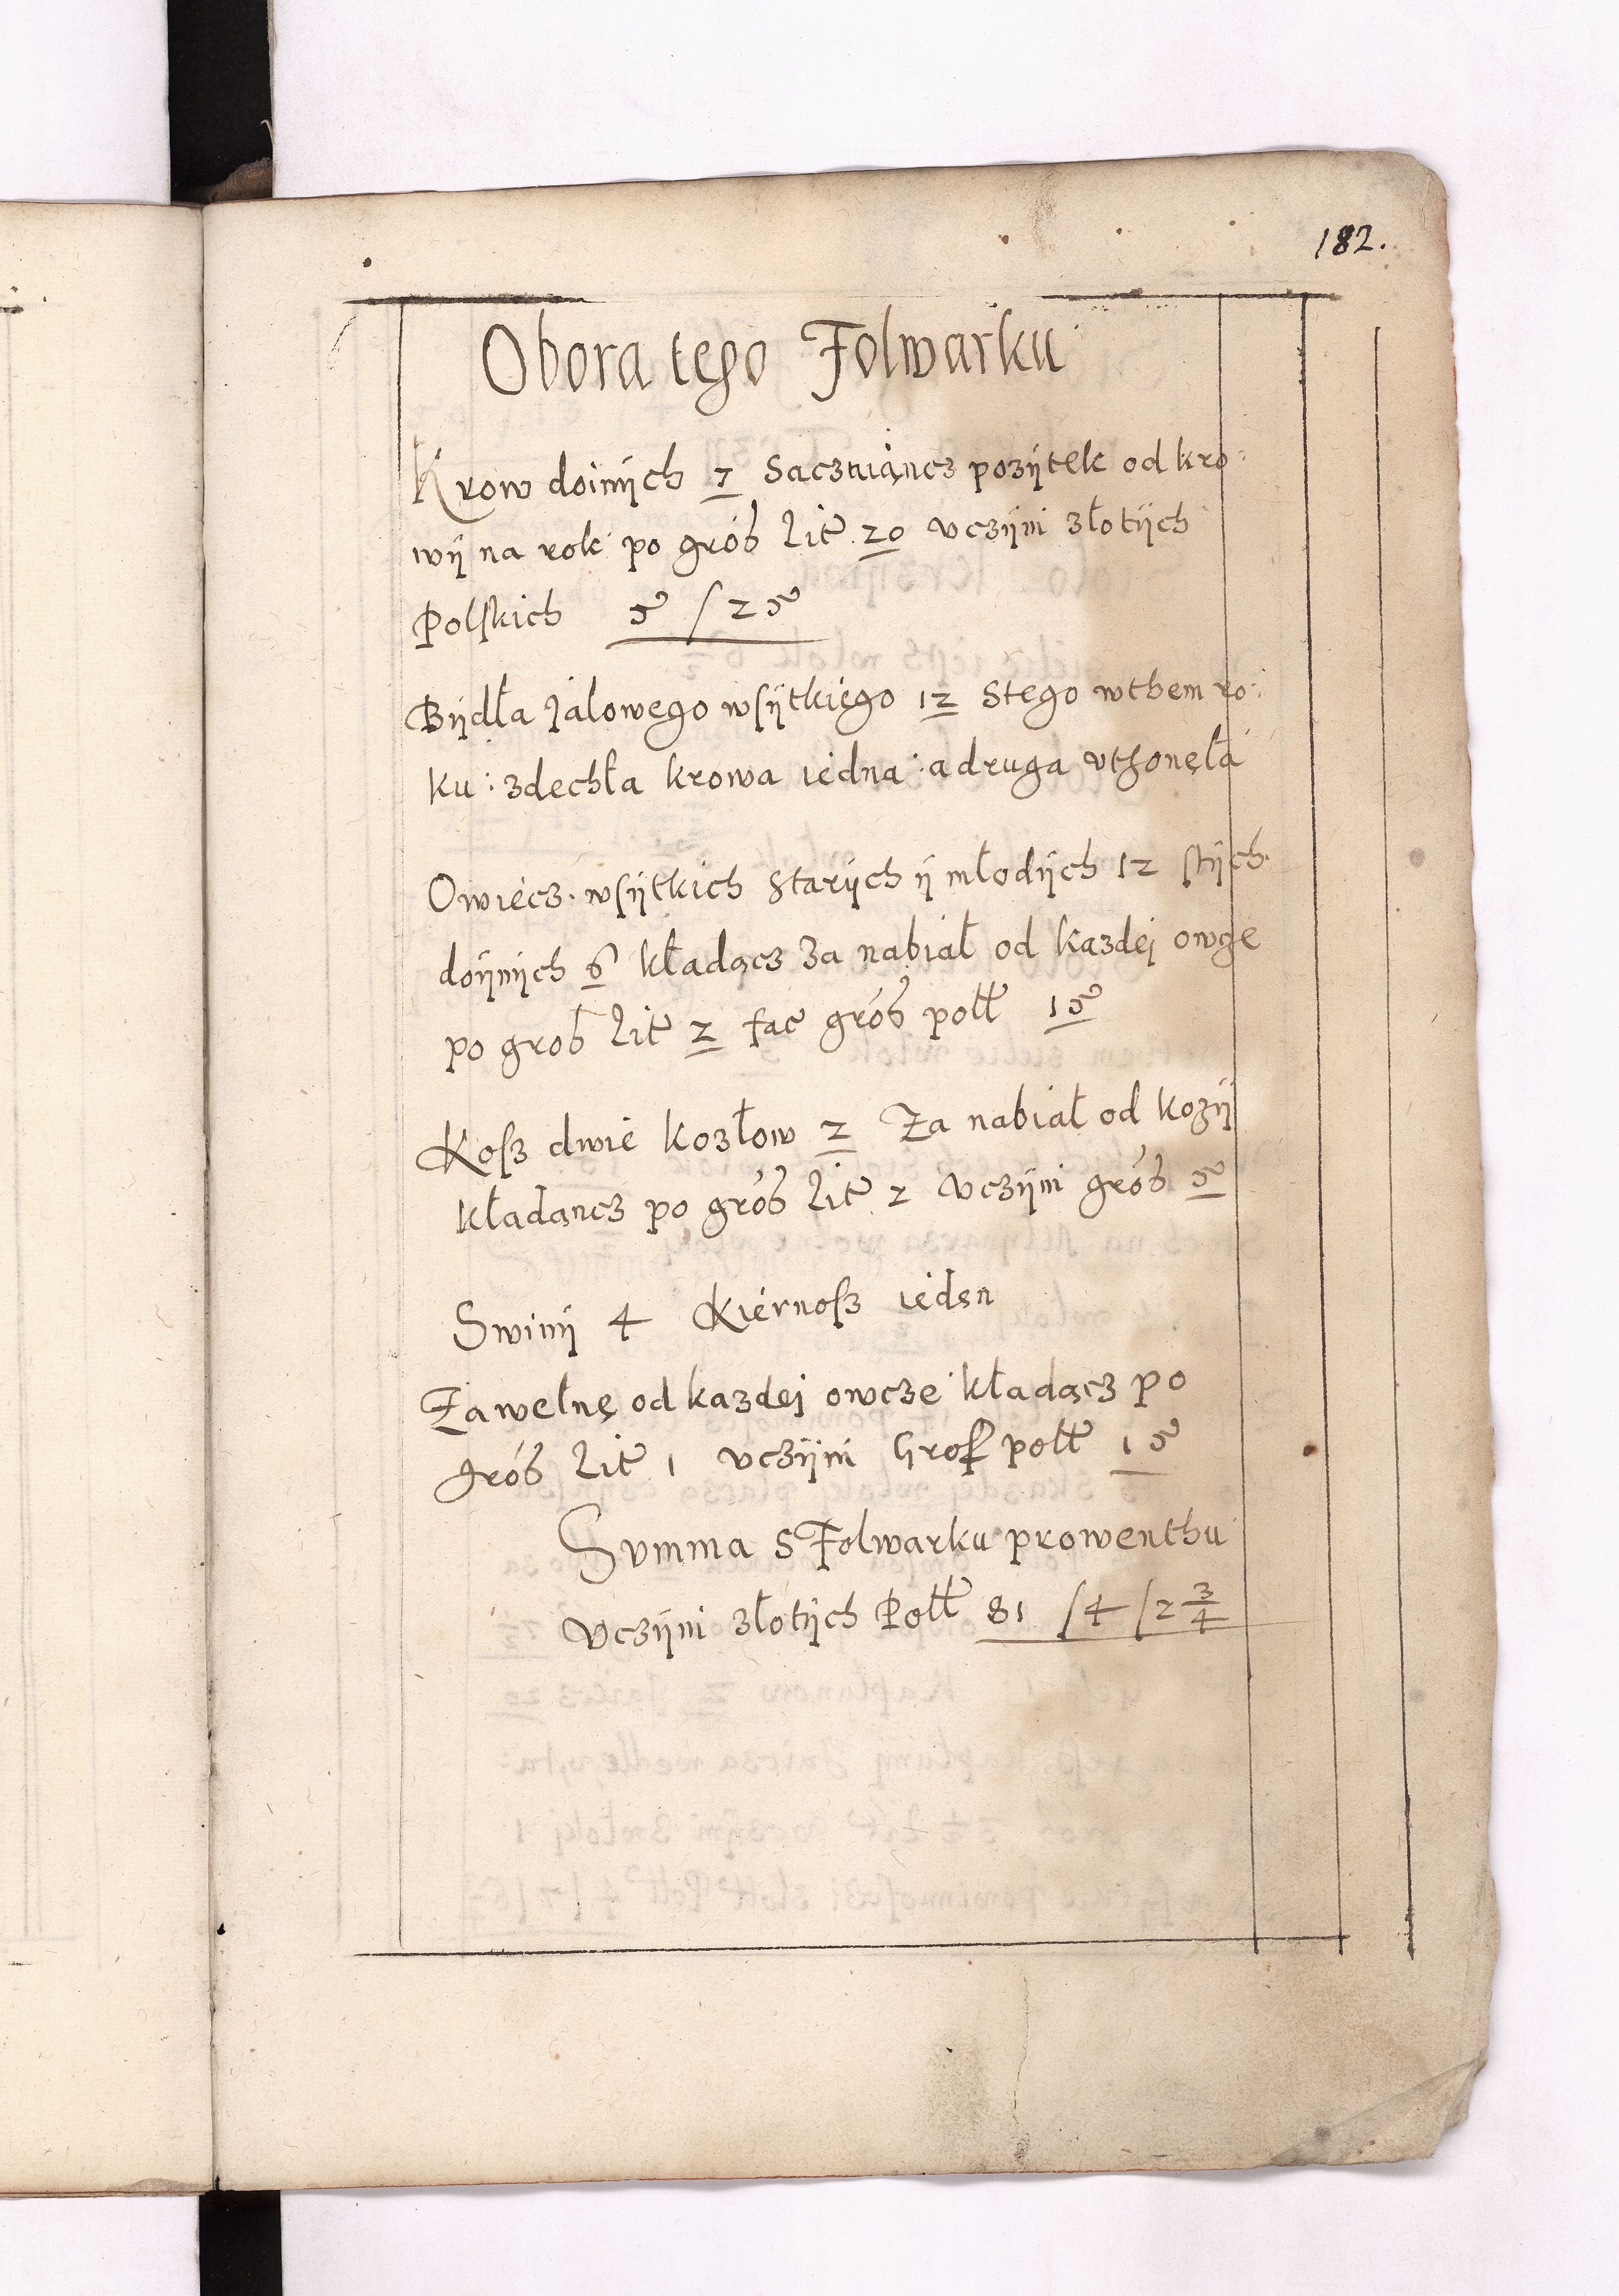 182.
Obora tego Folwarku
Krow doinÿch 7 Saczuiąncz pozÿtek od kro:
wÿ na rok po gróß litt 20 vczÿni złotÿch
Polſkich 5 / 25
Bÿdła Jałowego wſÿtkiego 12 Stego wthem ro:
ku: zdechła krowa iedna: a druga vthonęła
Owiecz wſÿtkich Starÿch ÿ młodÿch 12 ſtÿch
doÿnÿch 6 kładącz Za nabiał od kazdej owce
po groß litt 2 fac gróß poll 15
Koſz dwie kozłow 2 Za nabiał od kozÿ
kładąncz po gróß litt 2 vczÿni gróß 5
Swinÿ 4 Kiernoſz ieden
Za wełnę od kazdej owcze kładącz po
gróß litt 1 vczÿni Groſ poll 15
Summa S Folwarku prowenthu
vczÿni złotÿch Poll 81 / 4 / 2 3/4